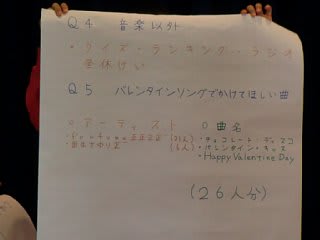 Q4 音楽以外
・クイズ・ランキング・ラジオ
全休けい
Q5 バレンタインソングでかけてほしい曲
○アーティスト ○曲名
・Perfume 正正正正 (21人) ・チョコレート・ディスコ
(5人) ・バレンタイン・キッス
・Happy Valentine Day
(26人分)